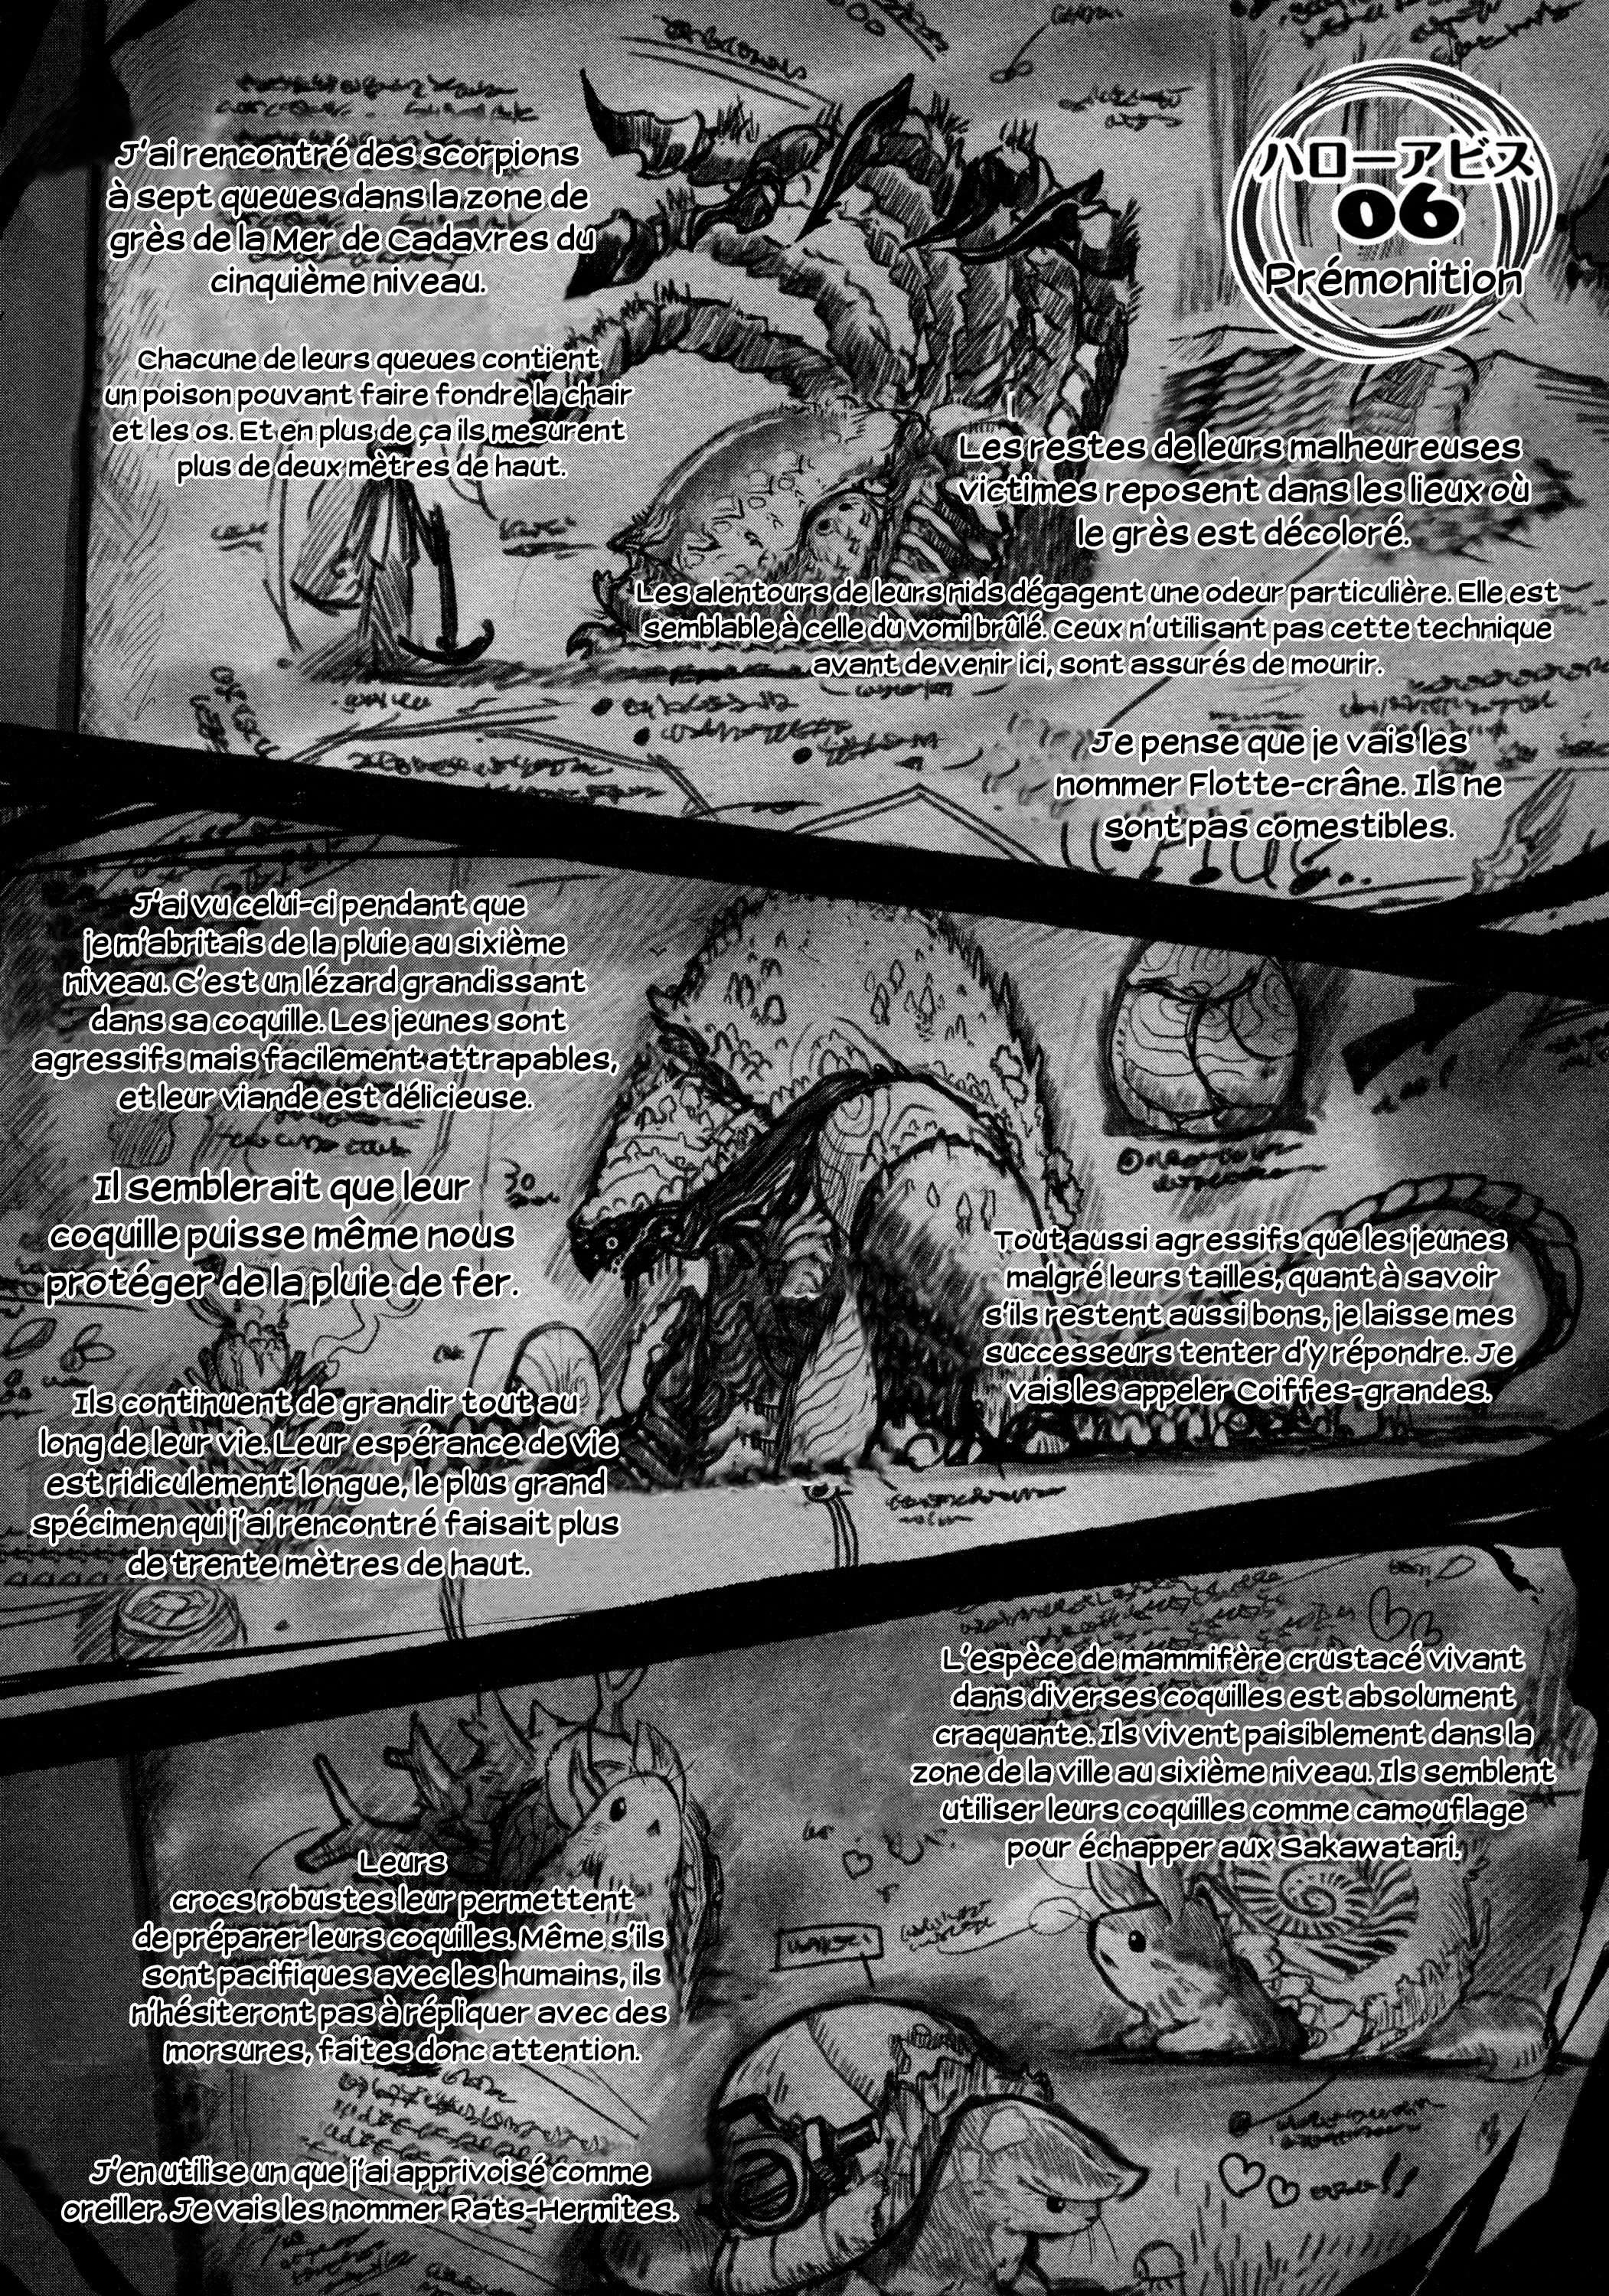 ハローアビス
06
Prémonition
J'ai rencontré des scorpions
à sept queues dans la zone de
grès de la Mer de Cadavres du
cinquième niveau.
Chacune de leurs queues contient
un poison pouvant faire fondre la chair
et les os. Et en plus de ça ils mesurent
plus de deux mètres de haut.
Les restes de leurs malheureuses
victimes reposent dans les lieux où
le grès est décoloré.
Les alentours de leurs nids dégagent une odeur particulière. Elle est
semblable à celle du vomi brûlé. Ceux n'utilisant pas cette technique
avant de venir ici, sont assurés de mourir.
Je pense que je vais les
nommer Flotte-crâne. Ils ne
sont pas comestibles.
J'ai vu celui-ci pendant que
je m'abritais de la pluie au sixième
niveau. C'est un lézard grandissant
dans sa coquille. Les jeunes sont
agressifs mais facilement attrapables,
et leur viande est délicieuse.
Il semblerait que leur
coquille puisse même nous
protéger de la pluie de fer.
Ils continuent de grandir tout au
long de leur vie. Leur espérance de vie
est ridiculement longue, le plus grand
spécimen qui j'ai rencontré faisait plus
de trente mètres de haut.
Tout aussi agressifs que les jeunes
malgré leurs tailles, quant à savoir
s'ils restent aussi bons, je laisse mes
successeurs tenter d'y répondre. Je
vais les appeler Coiffes-grandes.
L'espèce de mammifère crustacé vivant
dans diverses coquilles est absolument
craquante. Ils vivent paisiblement dans la
zone de la ville au sixième niveau. Ils semblent
utiliser leurs coquilles comme camouflage
pour échapper aux Sakawatari.
Leurs
crocs robustes leur permettent
de préparer leurs coquilles. Même s'ils
sont pacifiques avec les humains, ils
n'hésiteront pas à répliquer avec des
morsures, faites donc attention.
J'en utilise un que j'ai apprivoisé comme
oreiller. Je vais les nommer Rats-Hermites.